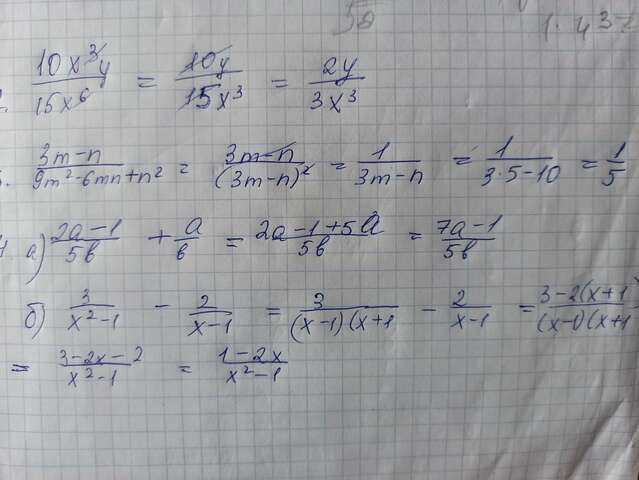 10x³y/15x⁶ = 10y/15x³ = 2y/3x³
3m-n/9m²-6mn+n² = 3m-n/(3m-n)² = 1/3m-n = 1/3·5-10 = 1/5
а) 2a-1/5b + a/b = 2a-1+5a/5b = 7a-1/5b
б) 3/x²-1 - 2/x-1 = 3/(x-1)(x+1 - 2/x-1 = 3-2(x+1)/(x-1)(x+1
= 3-2x-2/x²-1 = 1-2x/x²-1